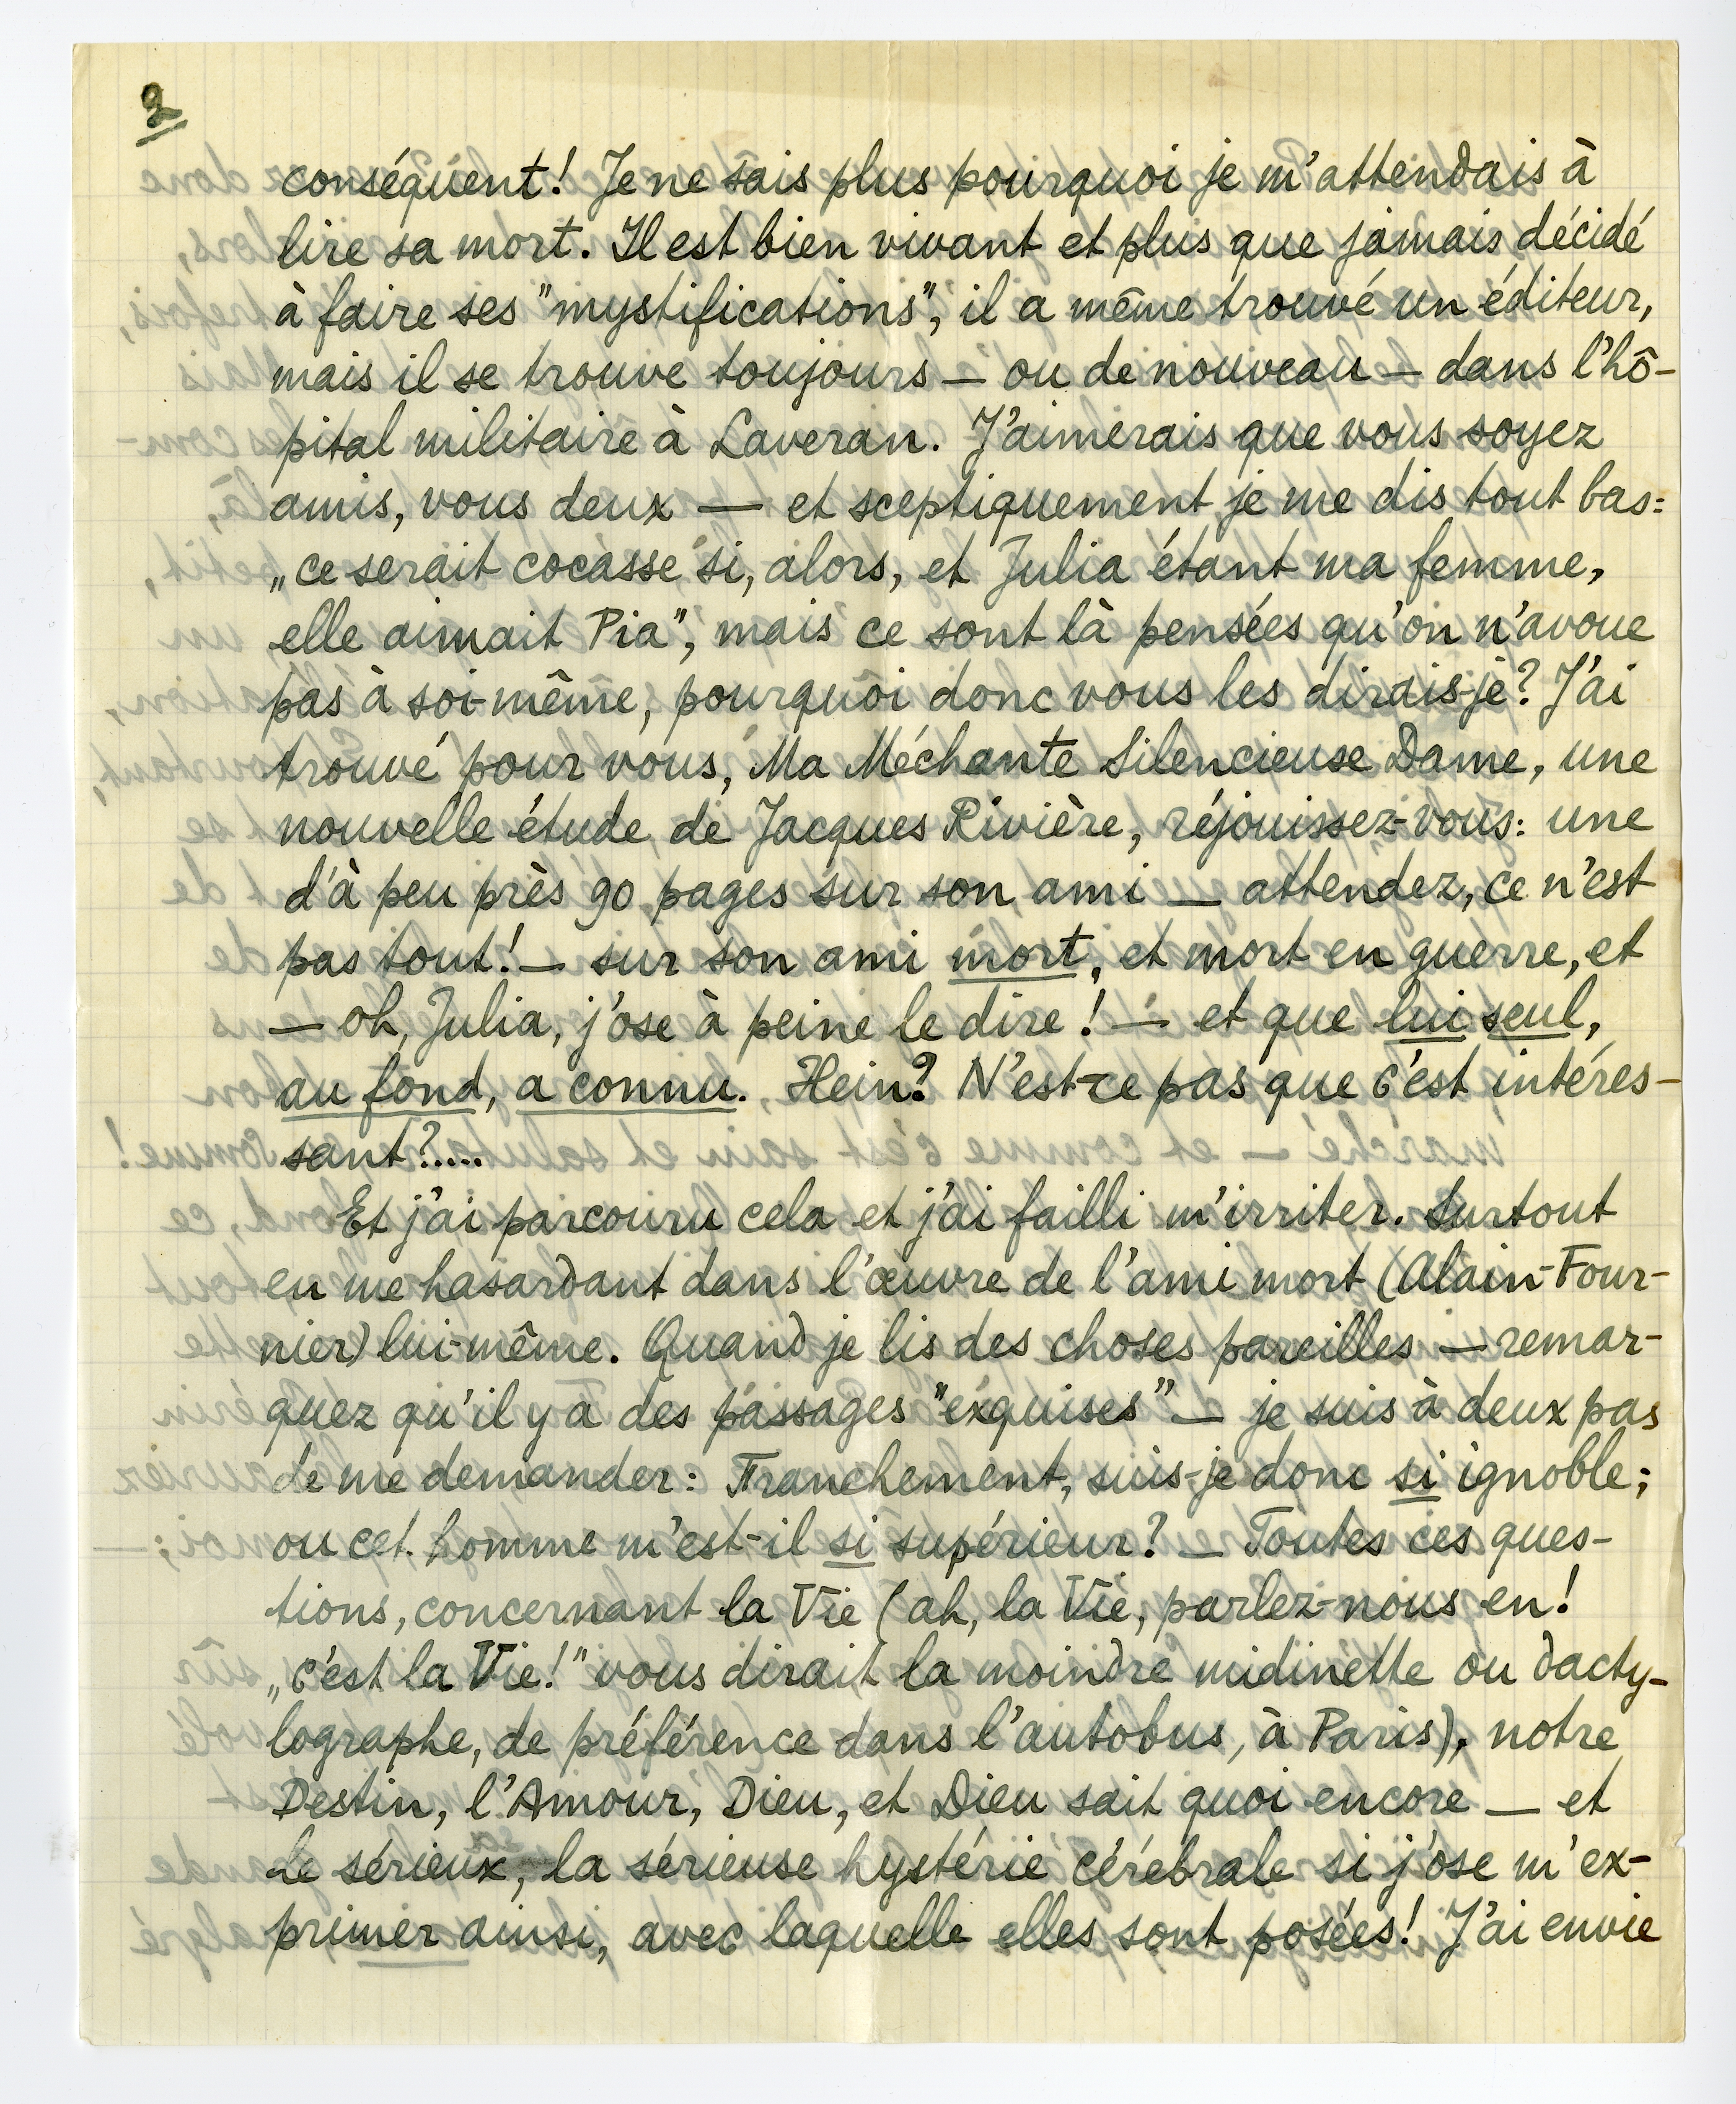 2
conséquent! Je ne sais plus pourquoi je m'attendais à
lire sa mort. Il est bien vivant et plus que jamais décidé
à faire ses "mystifications", il a même trouvé un éditeur,
mais il se trouve toujours — ou de nouveau — dans l'hô-
pital militaire à Laveran. J'aimerais que vous soyez
amis, vous deux — et sceptiquement je me dis tout bas:
„ce serait cocasse si, alors, et Julia étant ma femme,
elle aimait Pia", mais ce sont là pensées qu'on n'avoue
pas à soi-même, pourquoi donc vous les dirais-je? J'ai
trouvé pour vous, Ma Méchante Silencieuse Dame, une
nouvelle étude de Jacques Rivière, réjouissez-vous: une
d'à peu près 90 pages sur son ami — attendez, ce n'est
pas tout! — sur son ami mort, et mort en guerre, et
— oh, Julia, j'ose à peine le dire! — et que lui seul,
au fond, a connu. Hein? N'est-ce pas que c'est intéres-
sant?....
Et j'ai parcouru cela et j'ai failli m'irriter. Surtout
en me hasardant dans l'œuvre de l'ami mort (Alain-Four-
nier) lui-même. Quand je lis des choses pareilles — remar-
quez qu'il y a des passages "exquises" — je suis à deux pas
de me demander: Franchement, suis-je donc si ignoble;
ou cet homme m'est-il si supérieur? — Toutes ces ques-
tions, concernant la Vie (ah, la Vie, parlez-nous en!
„c'est la Vie!" vous dirait la moindre midinette ou dacty-
lographe, de préférence dans l'autobus, à Paris), notre
Destin, l'Amour, Dieu, et Dieu sait quoi encore — et
le sérieux, la sérieuse hystérie cérébrale si j'ose m'ex-
primer ainsi, avec laquelle elles sont posées! J'ai envie